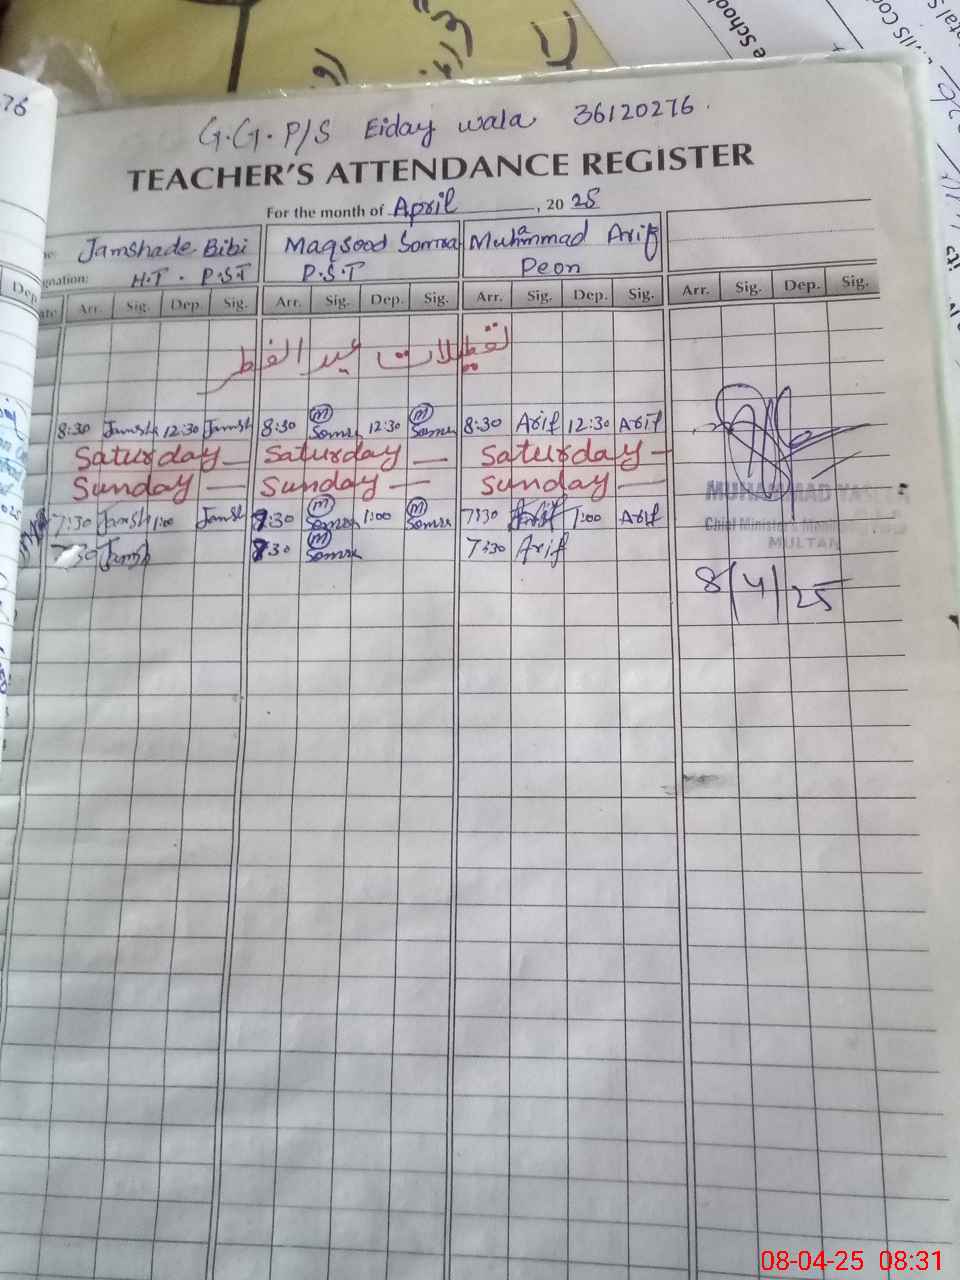 G.G.P/S Eiday wala 36120276.
TEACHER'S ATTENDANCE REGISTER
For the month of April, 2025
Jamshade Bibi Maqsood Somra Muhammad Arif
gnation: H.T. P.S.T P.S.T Peon
Arr. Sig. Dep. Sig. Arr. Sig. Dep. Sig. Arr. Sig. Dep. Sig. Arr. Sig. Dep. Sig.
تعطیلات عید الفطر
8:30 Jamsh 12:30 Jamsh 8:30 M Somra 12:30 M Somra 8:30 Arif 12:30 Arif
Saturday — Saturday — Saturday —
Sunday — Sunday — Sunday —
7:30 Jamsh 1:00 Jamsh 7:30 M Somra 1:00 M Somra 7:30 Arif 1:00 Arif
7:30 Jamsh 7:30 M Somra 7:30 Arif
MUHAMMAD
Chief Minister's
MULTAN
8/4/25
76
Dep
08-04-25 08:31